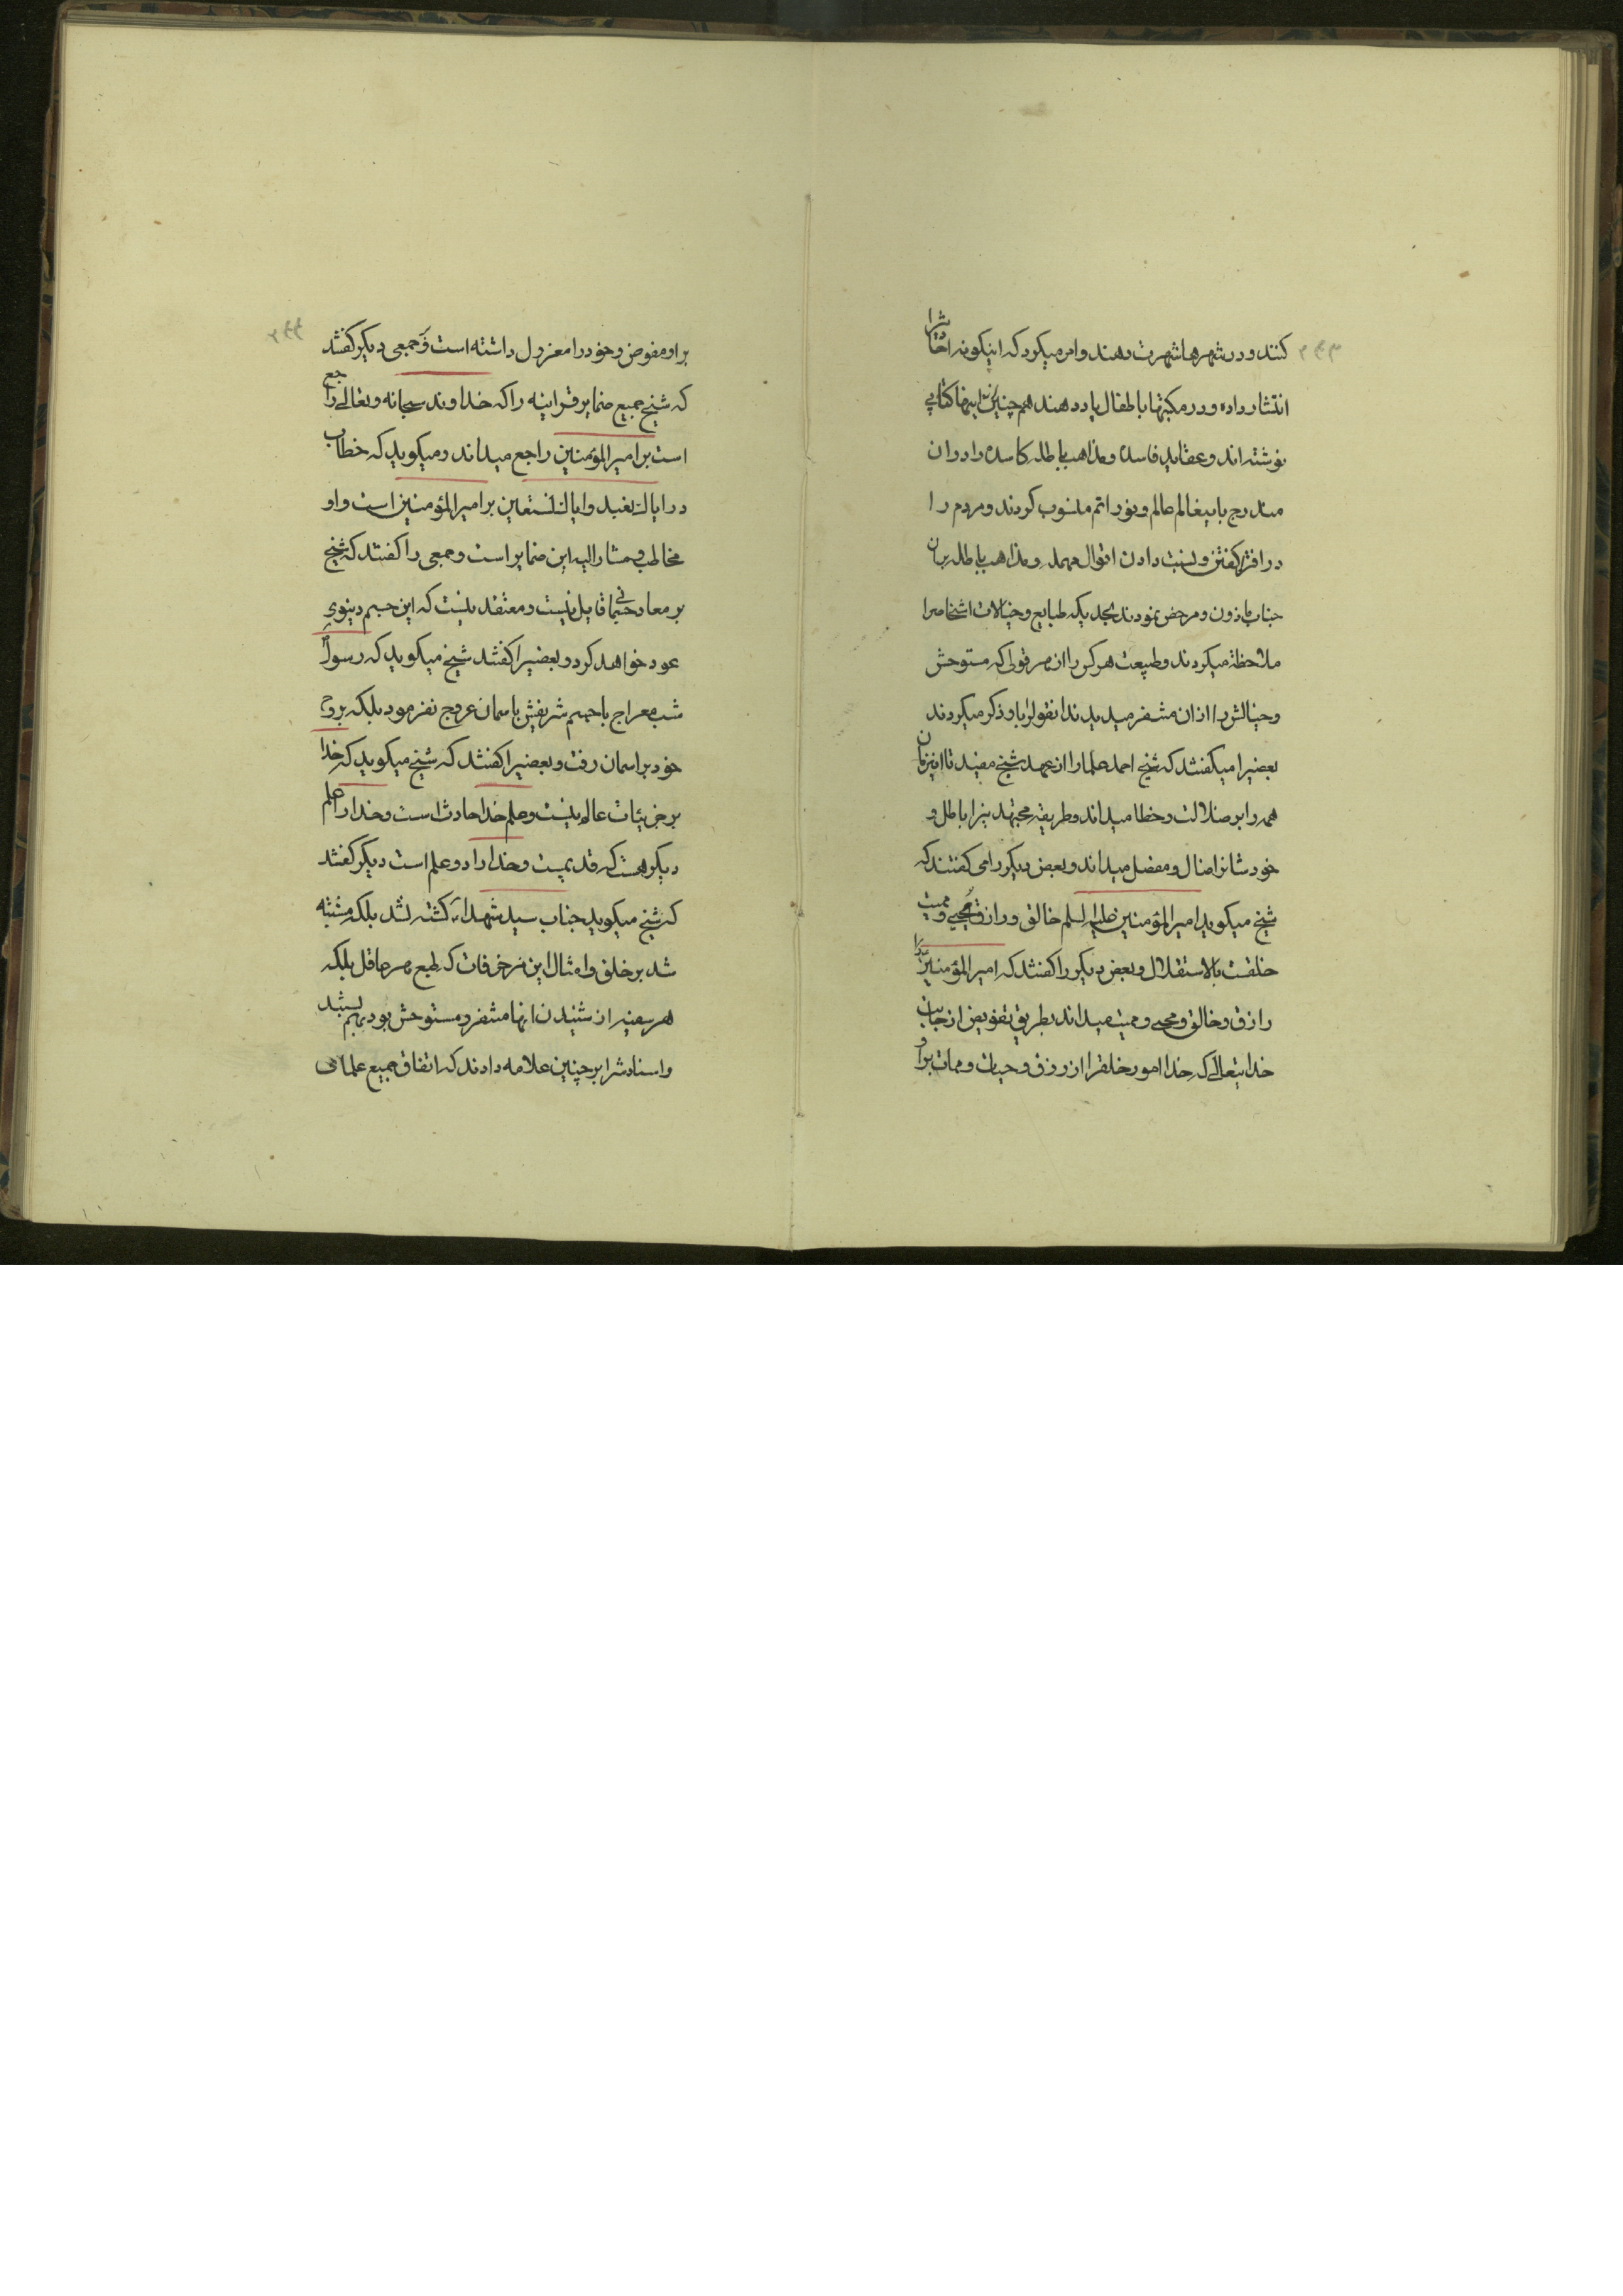 کنند و در شهرها شهرت دهند و امر میکرد که اینکونه احادیثرا
انتشار داده و در مکتبها باطفال یاد دهند همچنین اینها کتابی
نوشته اند و عقاید فاسده و مذاهب باطله کاسده را در ان
مندرج بانیغالم عالم و نور اتم منسوب کردند و مردم را
در افترا کفتن و نسبت دادن اقوال مهمله و مذاهب باطله بان
جناب ماذون و مرخص نمودند بحدیکه طبایع و خیالات اشخاصرا
ملاحظه میکردند و طبیعت هر کس را از هر قولی که مستوحش
و خیالش را از ان متنفر میدیدند انقولرا باو ذکر میکردند
بعضیرا میکفتند که شیخ احمد علما را از عهد شیخ مفید تا اینزمان
همه را بر ضلالت و خطا میداند و طریقه مجتهدینرا باطل و
خودشانرا ضال و مضل میداند و بعض دیکر را می کفتند که
شیخ میکوید امیرالمؤمنین علیه السلم خالق و رازق و محیی و ممیت
خلقست بالاستقلال و بعض دیکر را کفتند که امیرالمؤمنین را
رازق و خالق و محیی و ممیت میداند بطریق تفویض از جانب
خدایتعالی که خدا امور خلقرا از رزق و حیات و ممات برا و
بر او مفوض و خود را معزول داشته است و جمعی دیکر کفتند
که شیخ جمیع ضمایر قرانیه را که خداوند سبحانه و تعالی راجع
است بر امیرالمؤمنین راجع میداند و میکوید که خطاب
در ایاک نعبد و ایاک نستعین بر امیرالمؤمنین است و او
مخاطب و مشار الیه این ضمایر است و جمعی را کفتند که شیخ
بر معاد جسمانی قایل نیست و معتقد نیست که این جسم دنیوی
عود خواهد کرد و بعضیرا کفتند شیخ میکوید که رسول
شب معراج با جسم شریفش باسمان عروج نفرمود بلکه بروح
خود بر اسمان رفت و بعضیرا کفتند که شیخ میکوید که خدا
بر جزئیات عالم نیست و علم خدا حادث است و خدا را علم
دیکر هست که قدیمست و خدا را دو علم است دیکر کفتند
که شیخ میکوید جناب سید شهداء کشته نشد بلکه مشتبه
شد بر خلق و امثال این مزخرفات که طبع هر عاقل بلکه
هر سفیه از شنیدن انها متنفر و مستوحش بود بهم بستند
و اسنادشرا بر چنین علامه دادند که اتفاق جمیع علمای